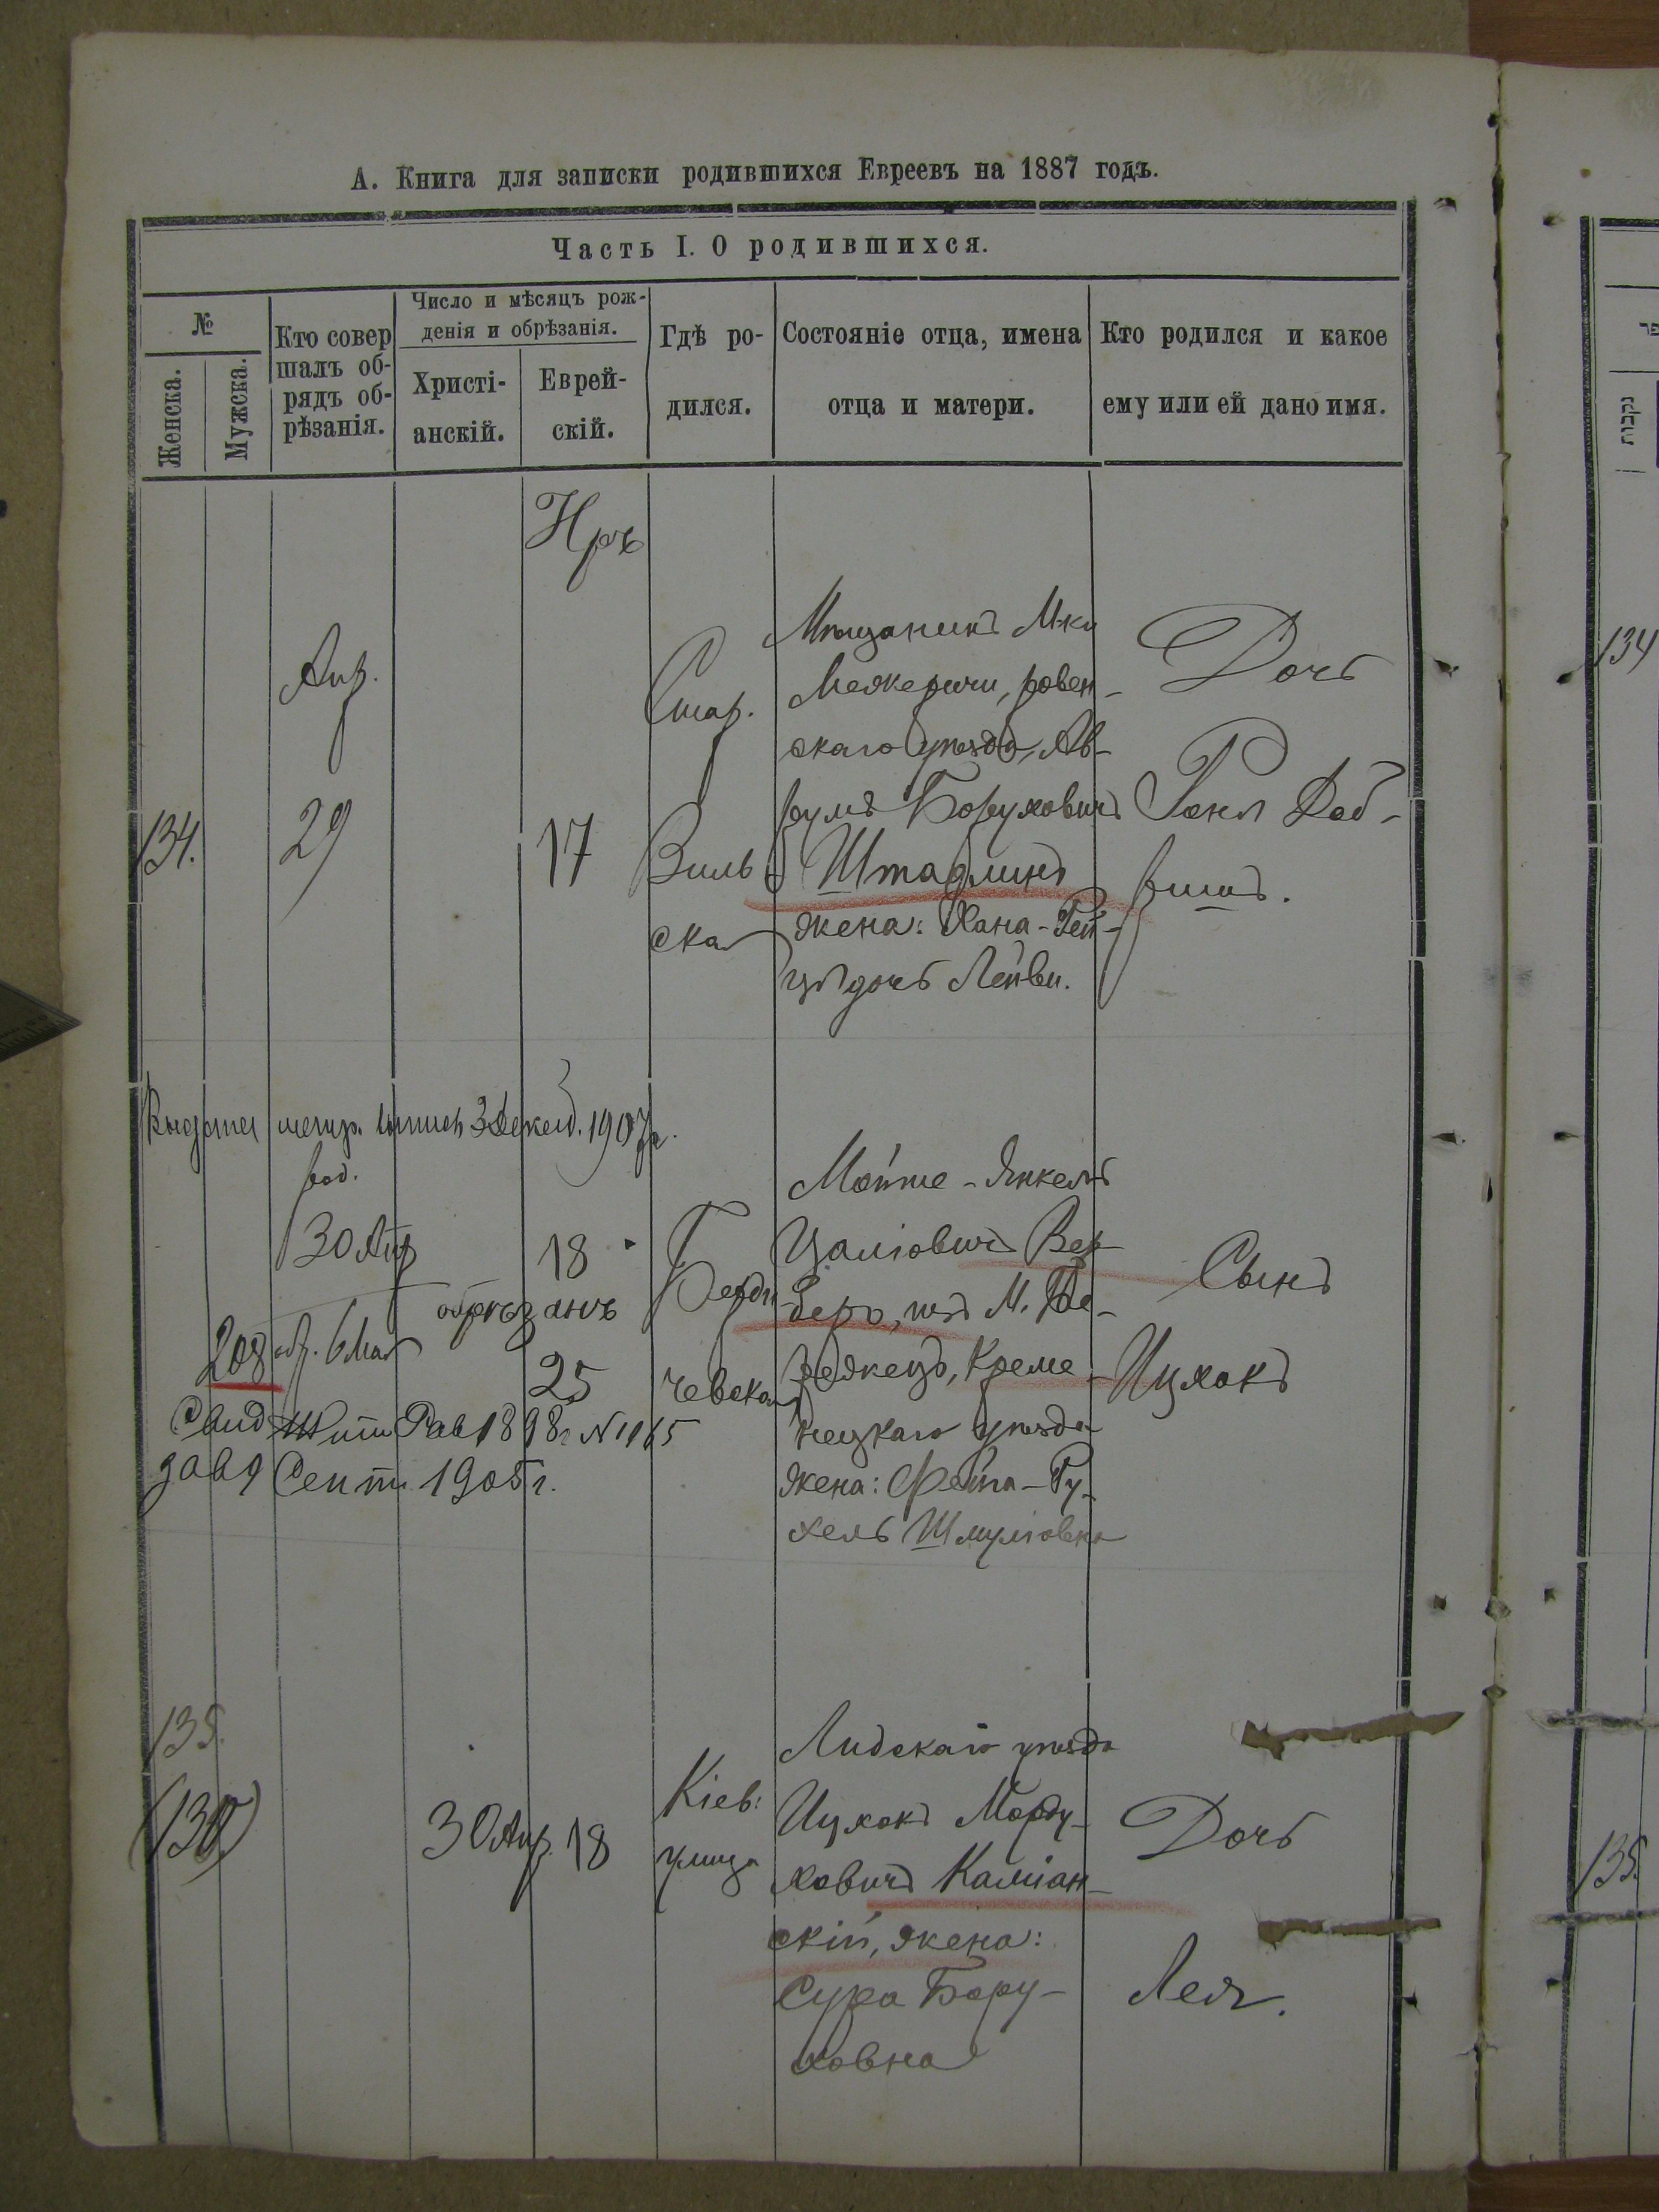 А. Книга для записки родившихся Евреевъ на 1887 годъ.
Часть I. О родившихся.
№
Женска.
Мужска.
Кто совер
шалъ об-
рядъ об-
рѣзанія.
Число и мѣсяцъ рож-
денія и обрѣзанія.
Христі-
анскій.
Еврей-
скій.
Гдѣ ро-
дился.
Состояніе отца, имена
отца и матери.
Кто родился и какое
ему или ей дано имя.
134.
Апр.
29
17
Стар.
Виль-
ская
Мѣщанинъ М-ка
Межеричи, ровен-
скаго уѣзда, Ав-
румъ Боруховичъ
жена: Хана-Рей-
дочь Лейви.
Дочь
134
נקבות
метр. 1907
род.
30 Апр
обр. 6 Мая
208
18
обрѣзанъ
25
Берди
чевская
Мойше-Янкель
Вер-
беръ, изъ М. Бе-
режецъ, Креме-
нецкаго уѣзда
жена: Фейга-Ру-
хель Шмулiовна
Сынъ
Ицхокъ
Рав 1898г N1165
Сент. 1905г.
135.
30 Апр. 18
Кіев:
улица
Лидскаго уѣзда
Ицхокъ Морду-
ховичъ Каміан-
скій, жена:
Сура Бору-
ховна
Дочь
Лея.
135.